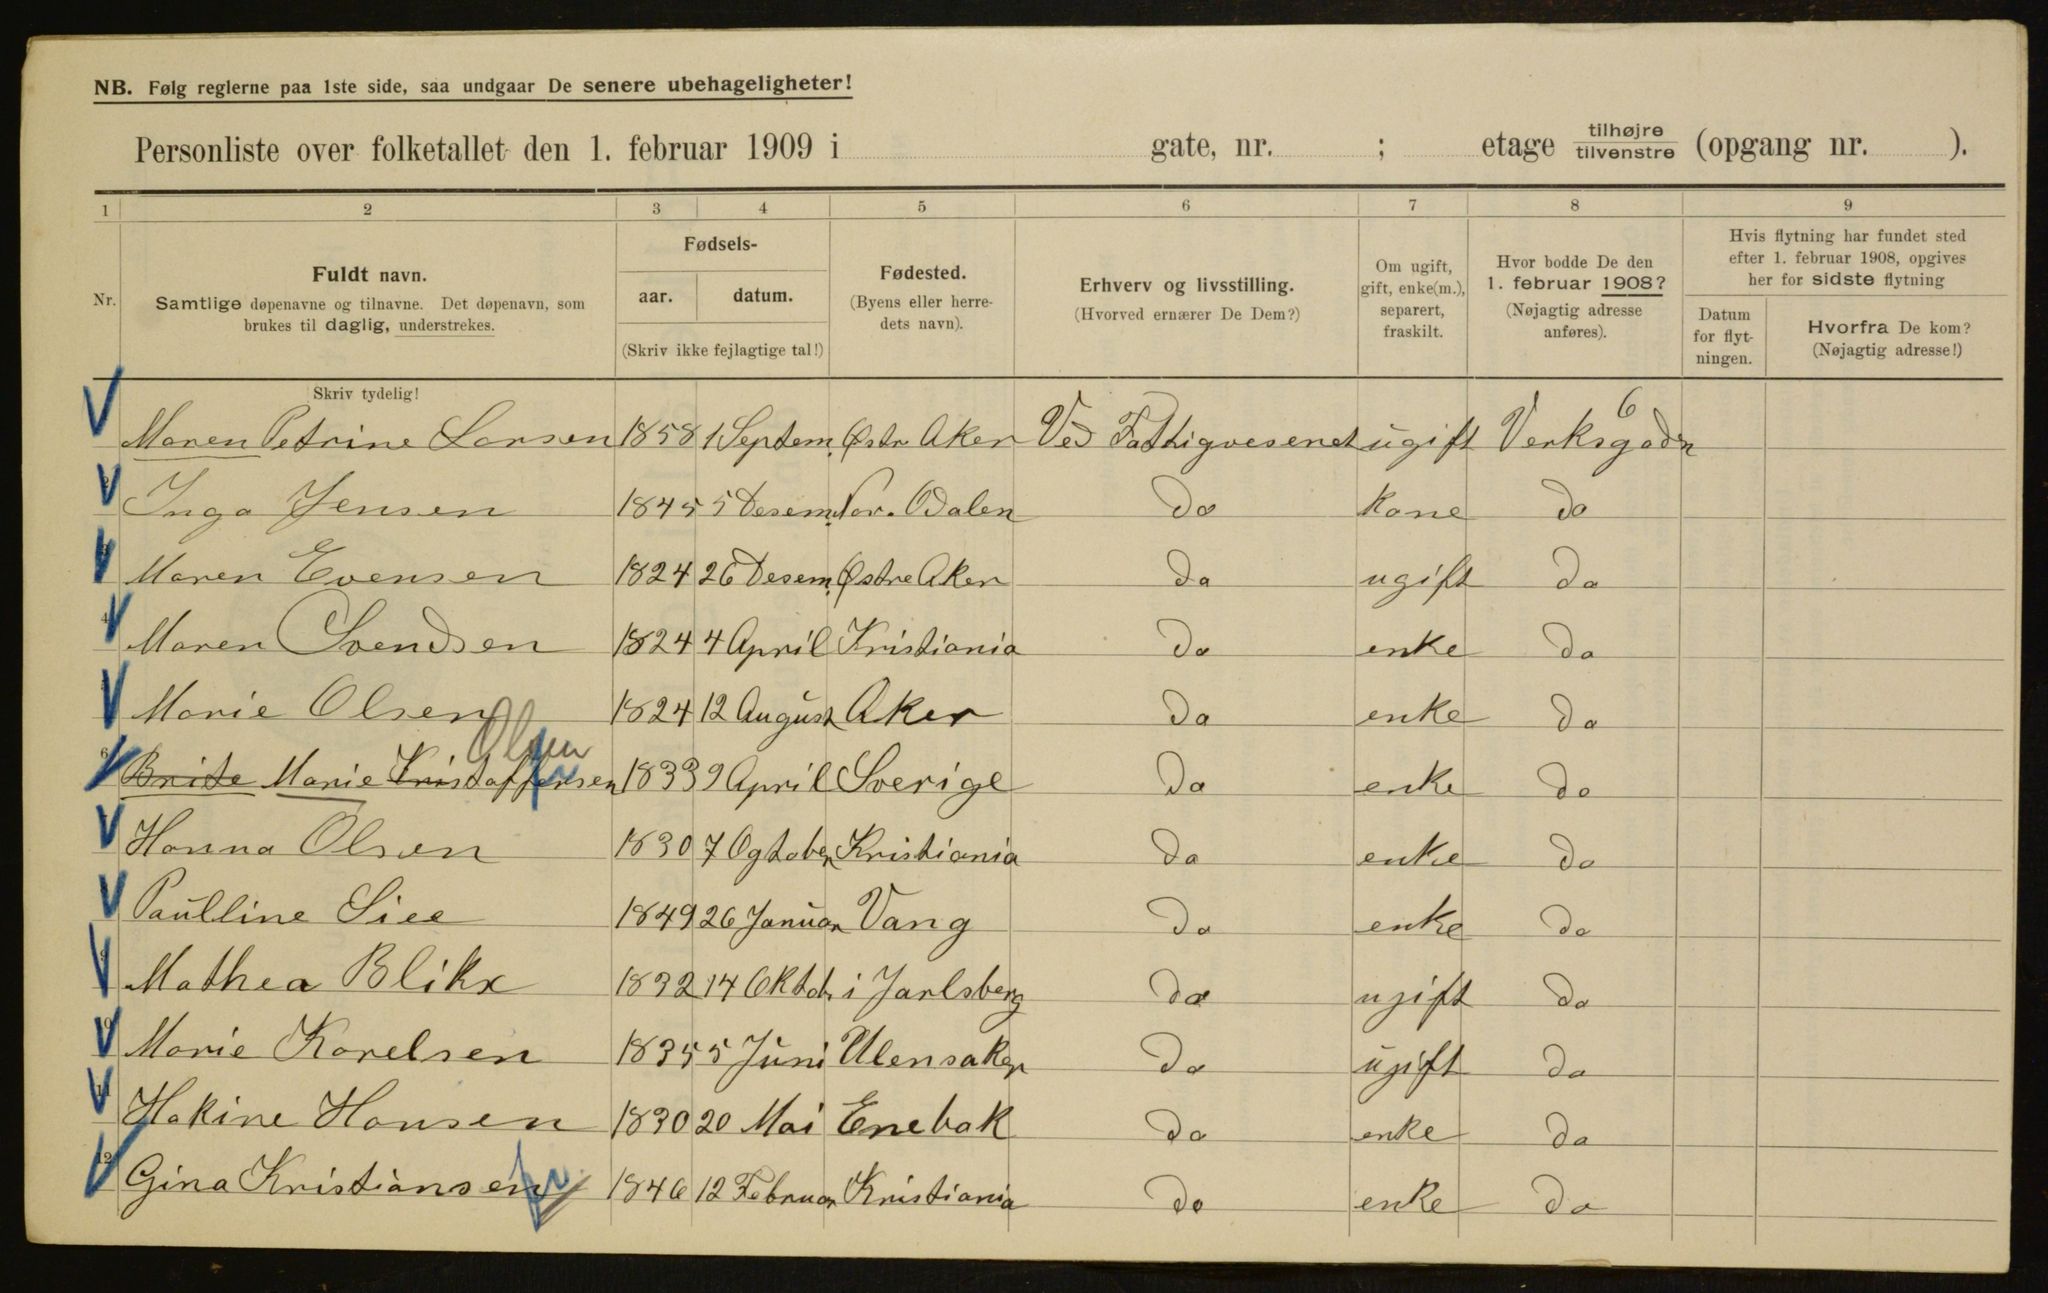 NB. Følg reglerne paa 1ste side, saa undgaar De senere ubehageligheter!
Personliste over folketallet den 1. februar 1909 i gate, nr. ; etage tilhøjre tilvenstre (opgang nr. ).
1 2 3 4 5 6 7 8 9
Nr.
Fuldt navn.
Samtlige døpenavne og tilnavne. Det døpenavn, som
brukes til daglig, understrekes.
Fødsels-
aar. datum.
(Skriv ikke fejlagtige tal!)
Fødested.
(Byens eller herre-
dets navn).
Erhverv og livsstilling.
(Hvorved ernærer De Dem?)
Om ugift,
gift, enke(m.),
separert,
fraskilt.
Hvor bodde De den
1. februar 1908?
(Nøjagtig adresse
anføres).
Hvis flytning har fundet sted
efter 1. februar 1908, opgives
her for sidste flytning
Datum
for flyt-
ningen.
Hvorfra De kom?
(Nøjagtig adresse!)
Skriv tydelig!
Maren Petrine Larsen 1858 1 Septem. Østr Aker Ved Fattigvesenet ugift Verksgaden 6
2 Inga Jensen 1845 5 Desem. Nor. Odalen Do kone Do
3 Maren Evensen 1824 26 Desem. Østre Aker Do ugift Do
4 Maren Svendsen 1824 4 April Kristiania Do enke Do
5 Marie Olsen 1824 12 August Aker Do enke Do
Olsen
6 Brite Marie Kristoffersen 1833 9 April Sverige Do enke Do
Hanna Olsen 1830 7 Ogtober Kristiania Do enke Do
Paulline Siee 1849 26 Januar Vang Do enke Do
9 Mathea Blikx 1832 14 Oktob. i Jarlsberg Do ugift Do
10 Marie Karelsen 1835 5 Juni Ulensaker Do ugift Do
11 Hakine Hansen 1830 20 Mai Enebak Do enke Do
12 Gina Kristiansen 1846 12 Februar Kristiania Do enke Do